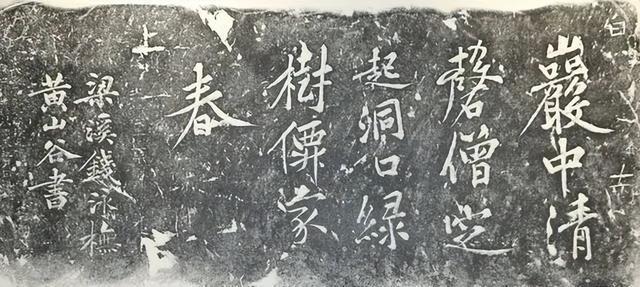 巖中清
磬僧定
起洞口綠
樹僊家
春
梁溪錢泳橅
黃山谷書